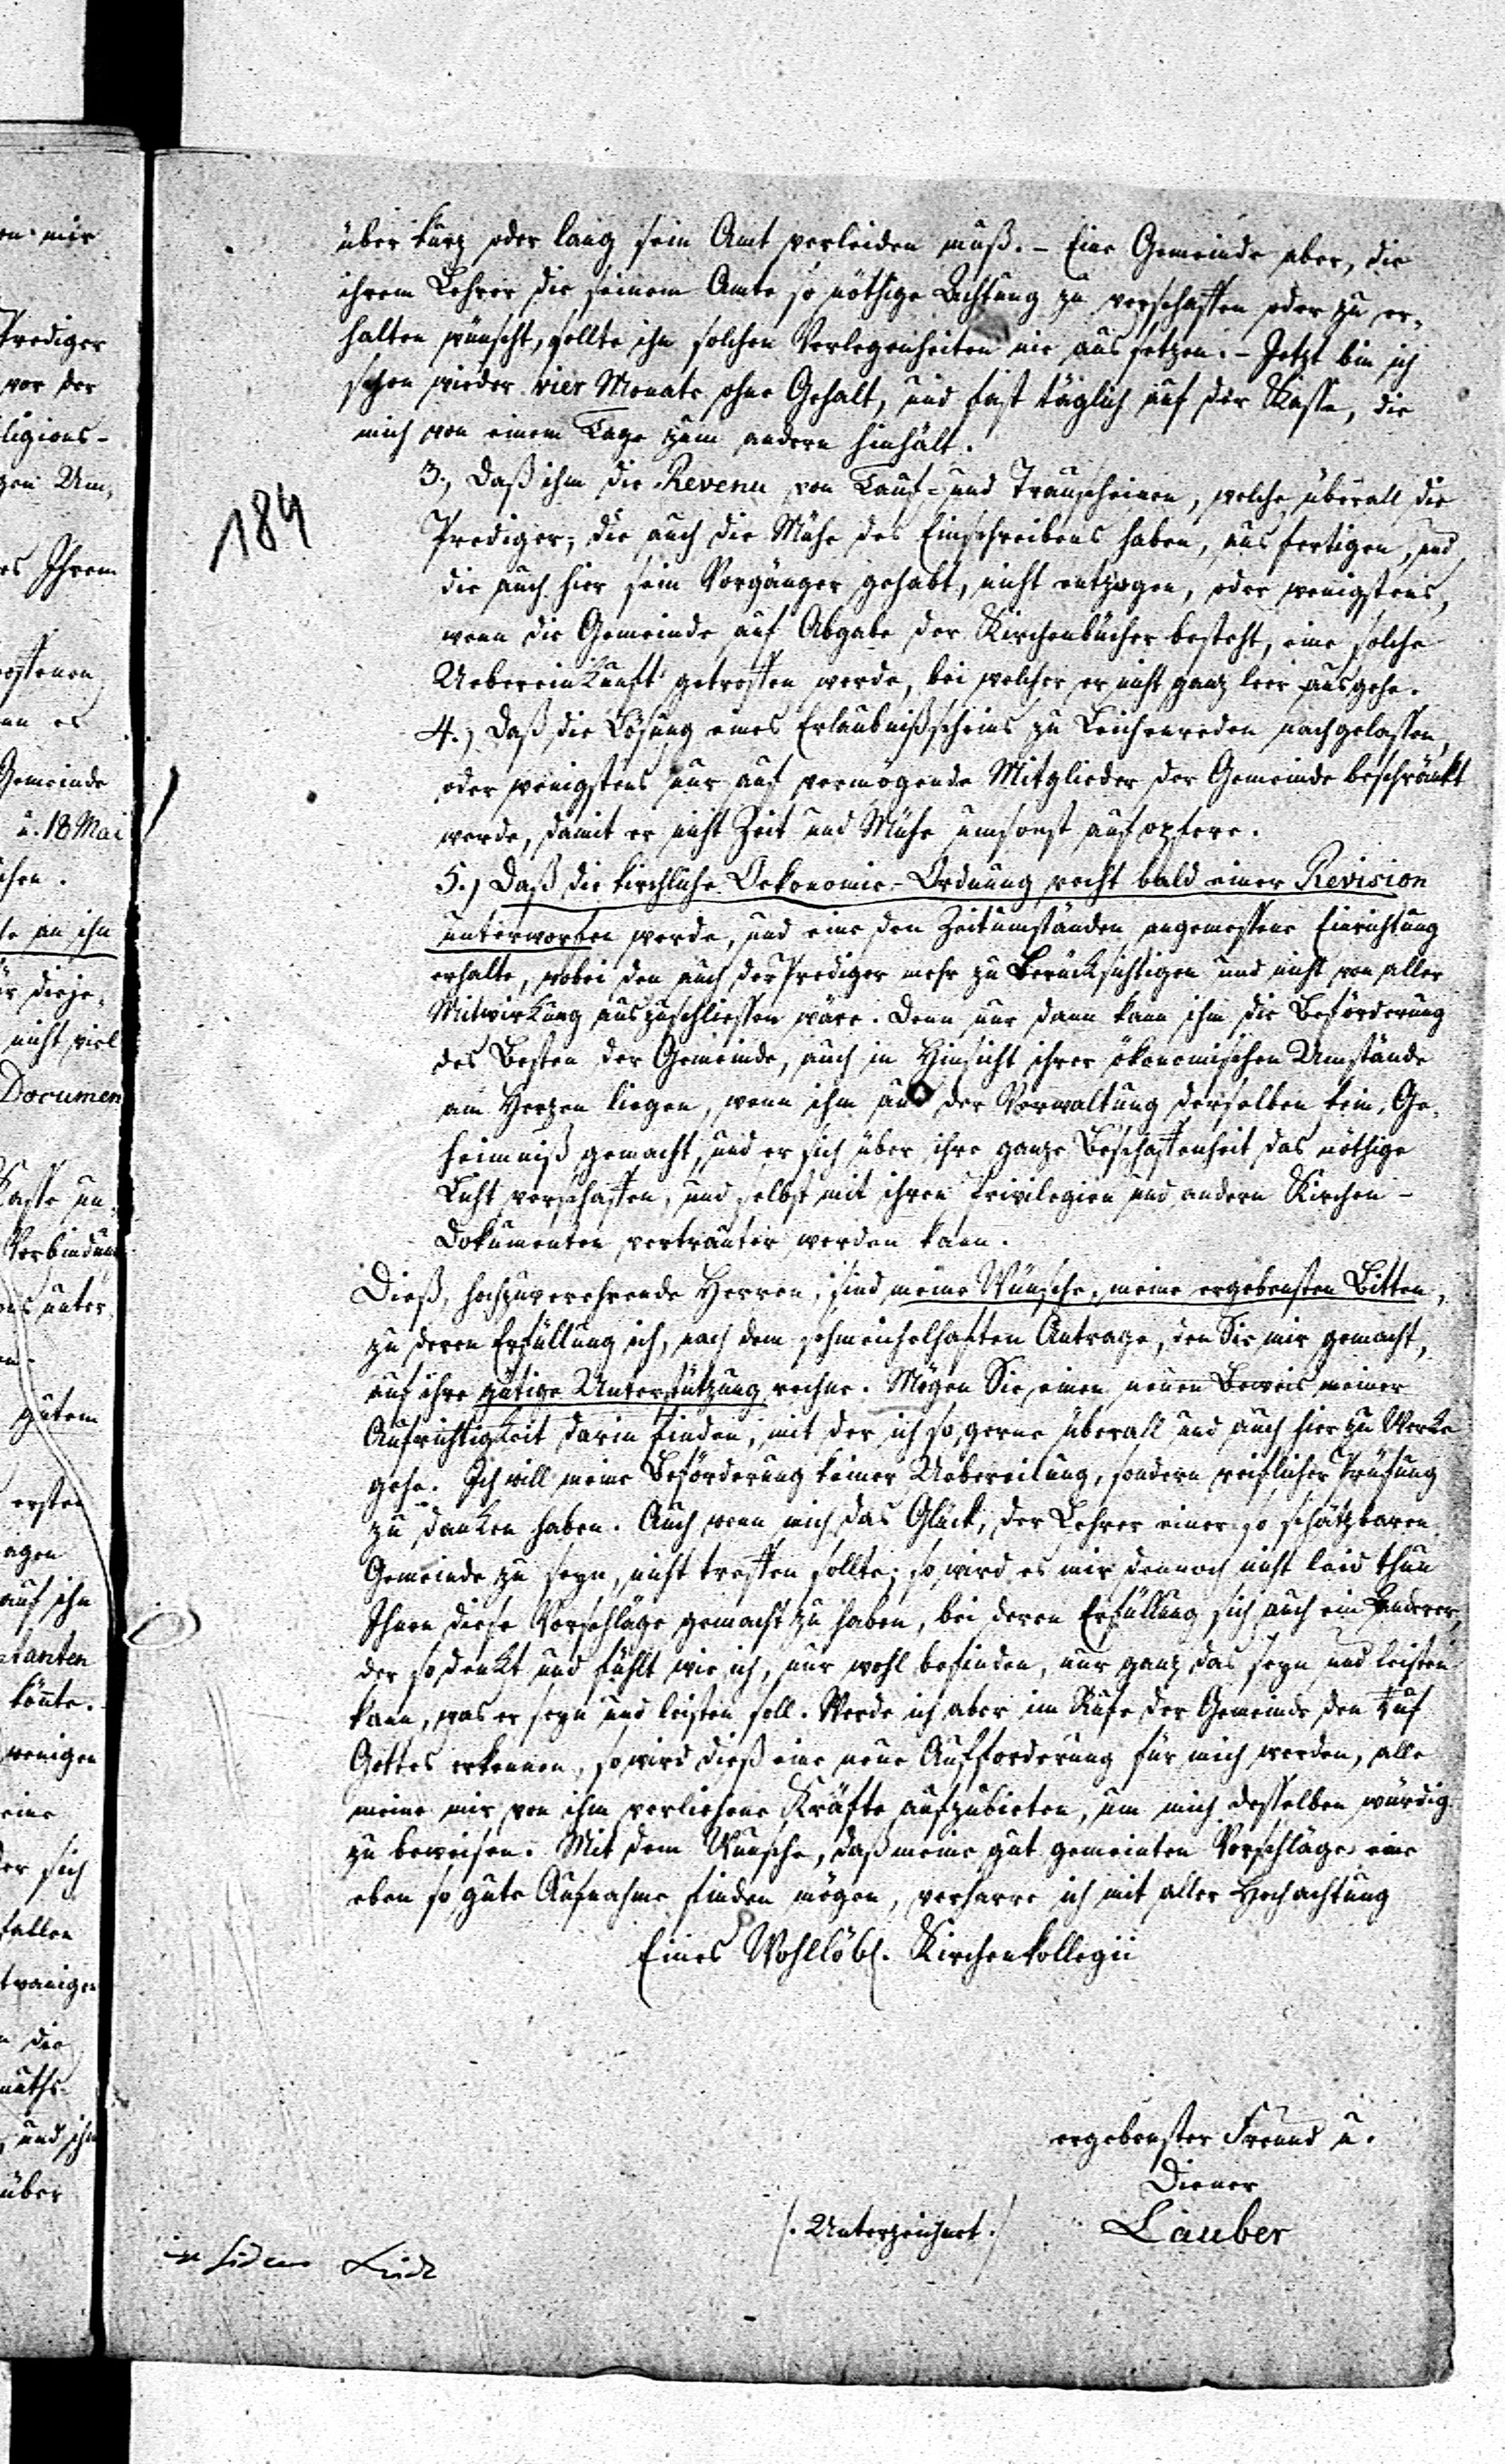 über kurz oder lang sein Amt verleiden muß. – Eine Gemeinde aber, die
ihrem Lehrer die seinem Amte so nöthige Achtung zu verschaffen oder zu er-
halten wünscht, sollte ihn solchen Verlegenheiten nie aussetzen. – Jetzt bin ich
schon wieder vier Monate ohne Gehalt, und fast täglich auf der Kasse, die
mich von einem Tage zum andern hinhält.
3., Daß ihm die Revenu von Tauf- und Trauscheinen, welche überall die
184
Prediger, die auch die Mühe des Einschreibens haben, ausfertigen, und
die auch hier sein Vorgänger gehabt, nicht entzogen, oder wenigstens,
wenn die Gemeinde auf Abgabe der Kirchenbücher besteht, eine solche
Uebereinkunft getroffen werde, bei welcher er nicht ganz leer ausgehe.
4.) Daß die Lösung eines Erlaubnißscheins zu Leichenreden nachgelassen,
oder wenigstens nur auf vermögende Mitglieder der Gemeinde beschränkt
werde, damit er nicht Zeit und Mühe umsonst aufopfere.
5.) Daß die kirchliche Oekonomie-Ordnung recht bald einer Revision
unterworfen werde, und eine den Zeitumständen angemessene Einrichtung
erhalte, wobei den auch der Prediger mehr zu berücksichtigen und nicht von aller
Mitwirkung auszuschliessen wäre. Denn nur dann kann ihm die Beförderung
des Besten der Gemeinde, auch in Hinsicht ihrer ökonomischen Umstände
am Herzen liegen, wenn ihm aus der Verwaltung derselben kein Ge-
heimniß gemacht, und er sich über ihre ganze Beschaffenheit das nöthige
Licht verschaffen, und selbst mit ihren Privilegien und andern Kirchen-
Dokumenten vertrauter werden kann.
Dieß, hochzuverehrende Herren, sind meine Wünsche, meine ergebensten Bitten,
zu deren Erfüllung ich, nach dem schmeichelhaften Antrage, den Sie mir gemacht,
auf ihre gütige Unterstützung rechne. Mögen Sie einen neuen Beweis meiner
Aufrichtigkeit darin finden, mit der ich so gerne überall und auch hier zu Werke
gehe. Ich will meine Beförderung keiner Uebereilung, sondern reiflicher Prüfung
zu danken haben. Auch wenn mich das Glück, der Lehrer einer so schätzbaren
Gemeinde zu seyn, nicht treffen sollte; so wird es mir dennoch nicht leid thun
Ihnen diese Vorschläge gemacht zu haben, bei deren Erfüllung sich auch ein Anderer,
der so denkt und fühlt wie ich, nur wohl befinden, nur ganz das seyn und leisten
kann, was er seyn und leisten soll. Werde ich aber im Rufe der Gemeinde den Ruf
Gottes erkennen, so wird dieß eine neue Aufforderung für mich werden, alle
meine mir von ihm verliehene Kräfte aufzubieten, um mich desselben würdig
zu beweisen. Mit dem Wunsche, daß meine gut gemeinten Vorschläge eine
eben so gute Aufnahme finden mögen, verharre ich mit aller Hochachtung
Eines Wohllöbl. Kirchenkollegii
ergebenster Freund u.
Diener
/. Unterzeichnet ./ Lauber
in fidem